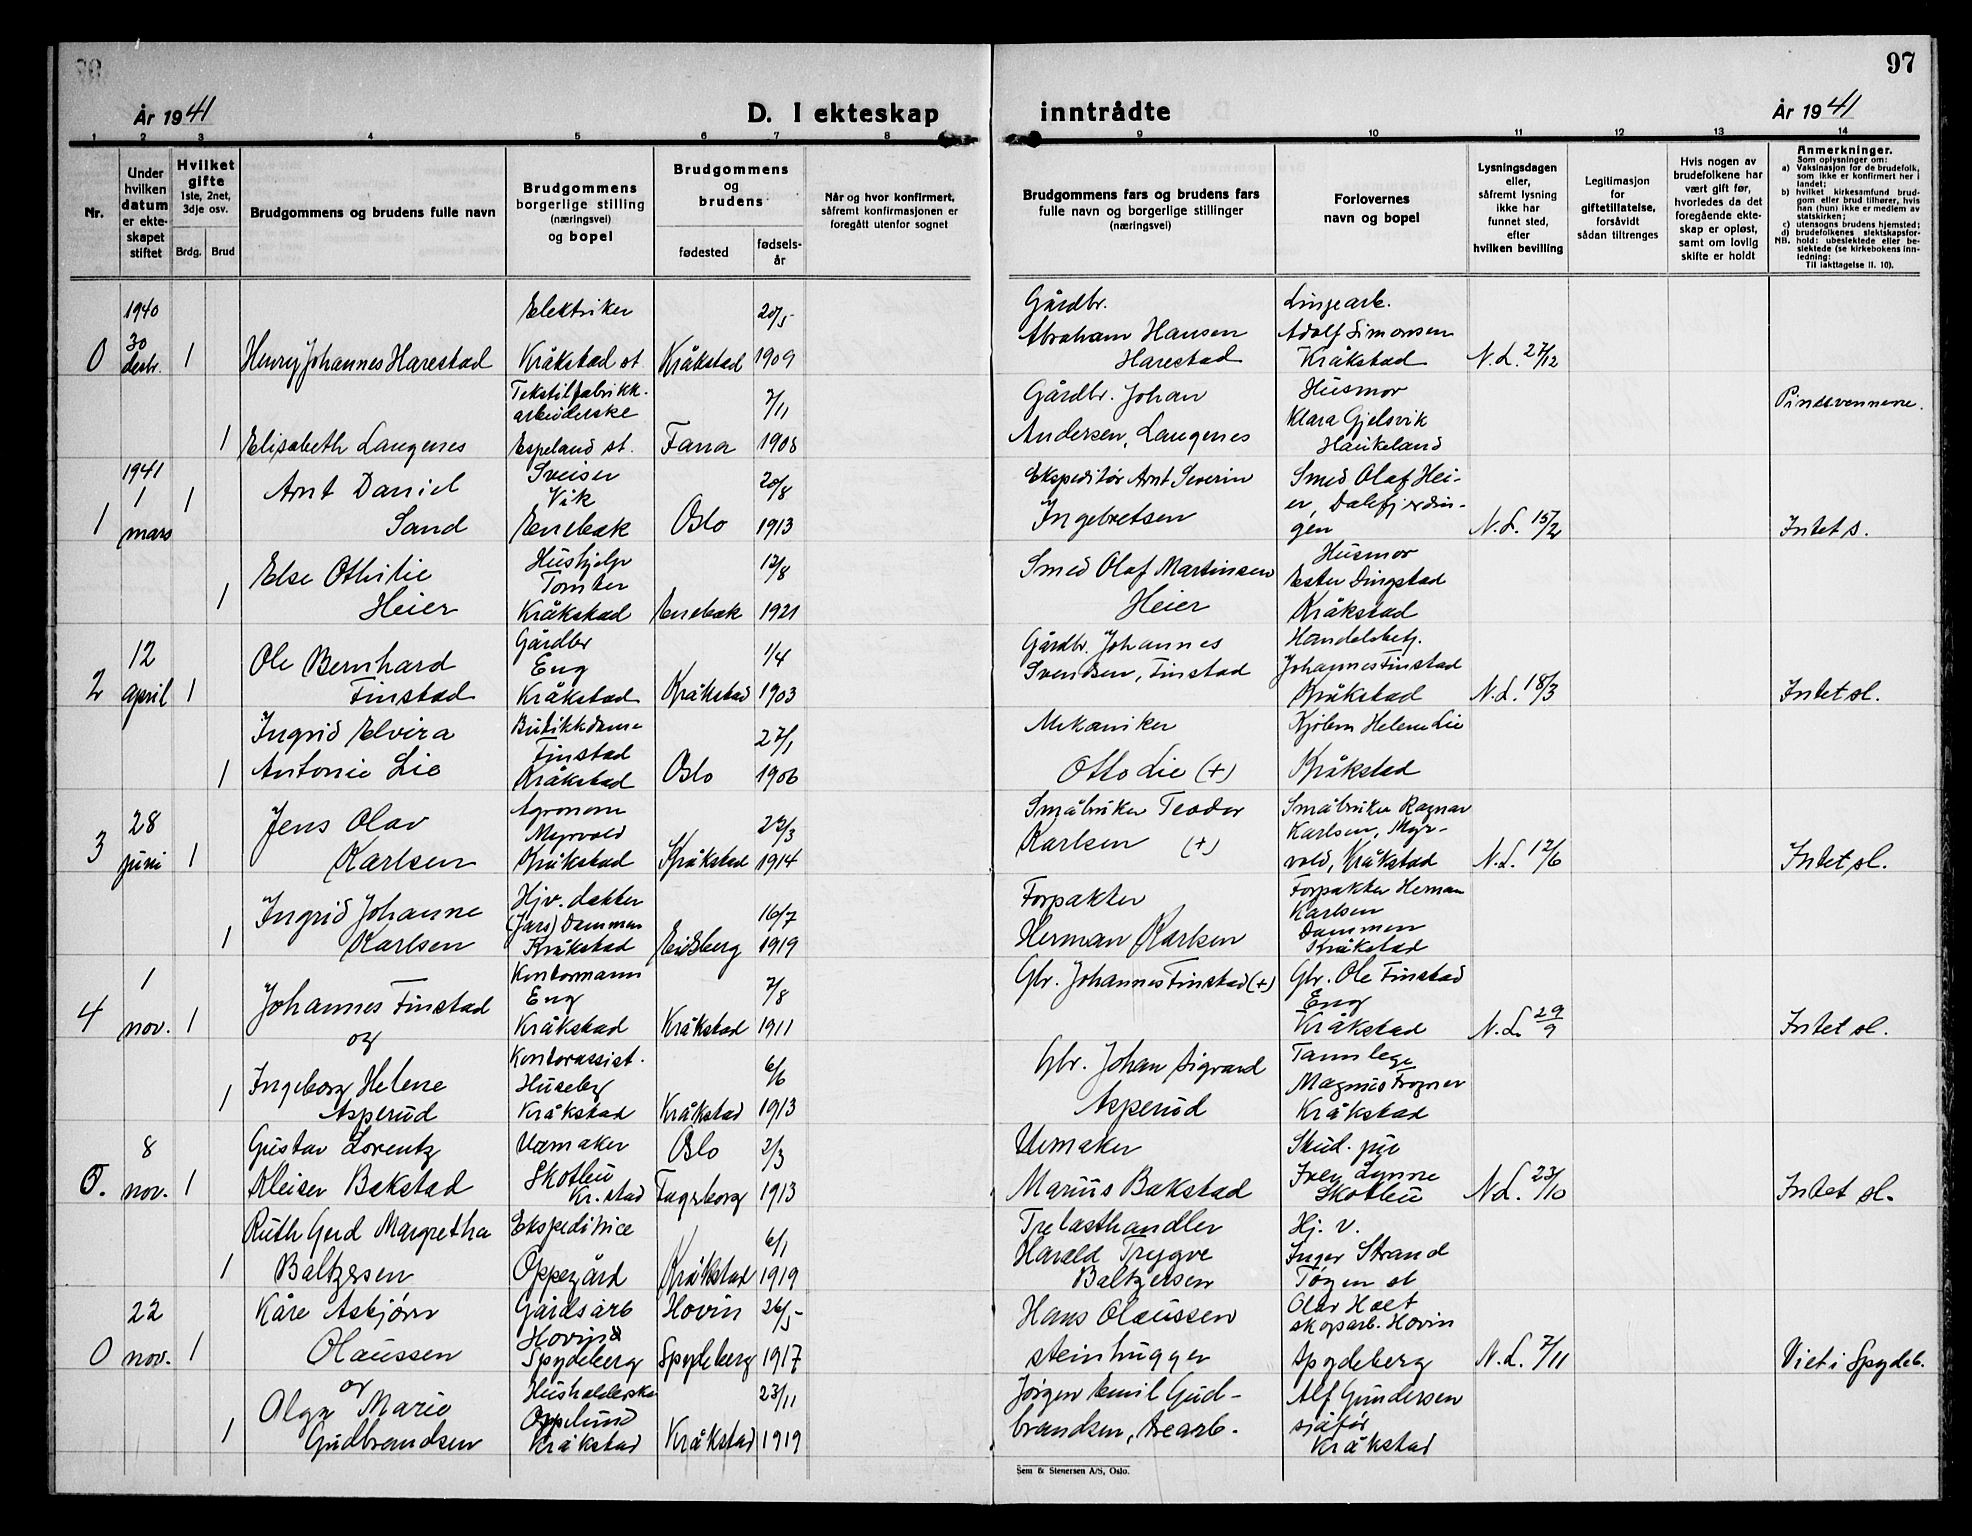 97
År 1941
D. I ekteskap
inntrådte
År 1941
1 2 3 4 5 6 7 8 9 10 11 12 13 14
Nr.
Under hvilken datum er ekteskapet stiftet
Hvilket gifte
1ste, 2net, 3dje osv.
Brdg. Brud
Brudgommens og brudens fulle navn
Brudgommens borgerlige stilling (næringsvei) og bopel
Brudgommens og brudens
fødested
fødselsår
Når og hvor konfirmert, såfremt konfirmasjonen er foregått utenfor sognet
Brudgommens fars og brudens fars fulle navn og borgerlige stillinger (næringsvei)
Forlovernes navn og bopel
Lysningsdagen eller, såfremt lysning ikke har funnet sted, efter hvilken bevilling
Legitimasjon for giftetillatelse, forsåvidt sådan tiltrenges
Hvis nogen av brudefolkene har vært gift før, hvorledes da det foregående ekteskap er opløst, samt om lovlig skifte er holdt
Anmerkninger.
Som oplysninger om:
a) Vaksinasjon for de brudefolk, som ikke er konfirmert her i landet;
b) hvilket kirkesamfund brudgom eller brud tilhører, hvis han (hun) ikke er medlem av statskirken;
c) utensogns brudens hjemsted;
d) brudefolkenes slektskapsforhold: ubeslektede eller beslektede (se kirkebokens innledning:
NB. Til iakttagelse II. 10).
0 1940 30 desbr. 1 Henry Johannes Harestad Elektriker Kråkstad st Kråkstad 20/5 1909 Gårdbr. Abraham Hansen Harestad Linjearb. Adolf Simonsen Kråkstad N.L. 27/12
1 Elisabeth Langenes Tekstilfabrikk-arbeiderske Espeland st. Fana 7/11 1908 Gårdbr. Johan Andersen, Langenes Husmor Klara Gjelsvik Haukeland Pinsevennene.
1 1941 1 mars 1 Arnt Daniel Sand Sveiser Vik Enebak Oslo 20/8 1913 Ekspeditør Arnt Severin Ingebretsen Smed Olaf Heier, Dalefjerdingen N.L. 15/2 Intet s.
1 Else Othilie Heier Hushjelp Tomter Kråkstad Enebak 12/8 1921 Smed Olaf Martinsen Heier Husmor Ester Dingstad Kråkstad
2 12 april 1 Ole Bernhard Finstad Gårdbr Eng Kråkstad Kråkstad 1/4 1903 Gårdbr. Johannes Svendsen, Finstad Handelsbetj. Johannes Finstad Kråkstad N.L. 18/3 Intet sl.
1 Ingrid Elvira Antonie Lie Butikkdame Finstad Kråkstad Oslo 27/1 1906 Mekaniker Otto Lie (+) Helene Lie Kråkstad
3 28 juni 1 Jens Olav Karlsen Agronom Myrvold Kråkstad Kråkstad 22/3 1914 Småbruker Teodor Karlsen (+) Småbruker Ragnar Karlsen, Myrvold, Kråkstad N.L. 12/6 Intet sl.
1 Ingrid Johanne Karlsen Hjv. datter (fars) Dammen Kråkstad Eidsberg 16/7 1919 Forpakter Herman Karlsen Forpakter Herman Karlsen Dammen Kråkstad
4 1 nov. 1 Johannes Finstad og Kontormann Eng Kråkstad Kråkstad 7/8 1911 Gbr. Johannes Finstad (+) Gbr. Ole Finstad Eng Kråkstad N.L. 29/9 Intet sl.
1 Ingeborg Helene Asperud Kontorassist. Huseby Kråkstad Kråkstad 6/6 1913 Gbr. Johan Sigvard Asperud Tannlege Magnus Frogner Kråkstad
5. 8 nov. 1 Gustav Lorentz Kleiser Bakstad Urmaker Skotbu Kr.stad Oslo Fagerborg 2/3 1913 Urmaker Marius Bakstad Stud. jur Skotbu N.L. 23/10 Intet sl.
1 Ruth Gerd Margretha Baltzersen Ekspeditrice Oppegård Kråkstad 6/1 1919 Trelasthandler Harald Trygve Baltzersen Hj. v. Inger Strand st
0 22 nov. 1 Kåre Asbjørn Olaussen og Gårdsarb Hovin Spydeberg Hovin Spydeberg 26/5 1917 Hans Olaussen steinhugger Olav Holt skogarb. Hovin Spydeberg N.L. 7/11 Viet i Spydeb.
1 Olga Marie Gudbrandsen Husholderske Oppelund Kråkstad Kråkstad 23/11 1919 Jørgen Emil Gudbrandsen, trearb. Alf Gundersen sjåfør Kråkstad
Sem & Stenersen A/S, Oslo.